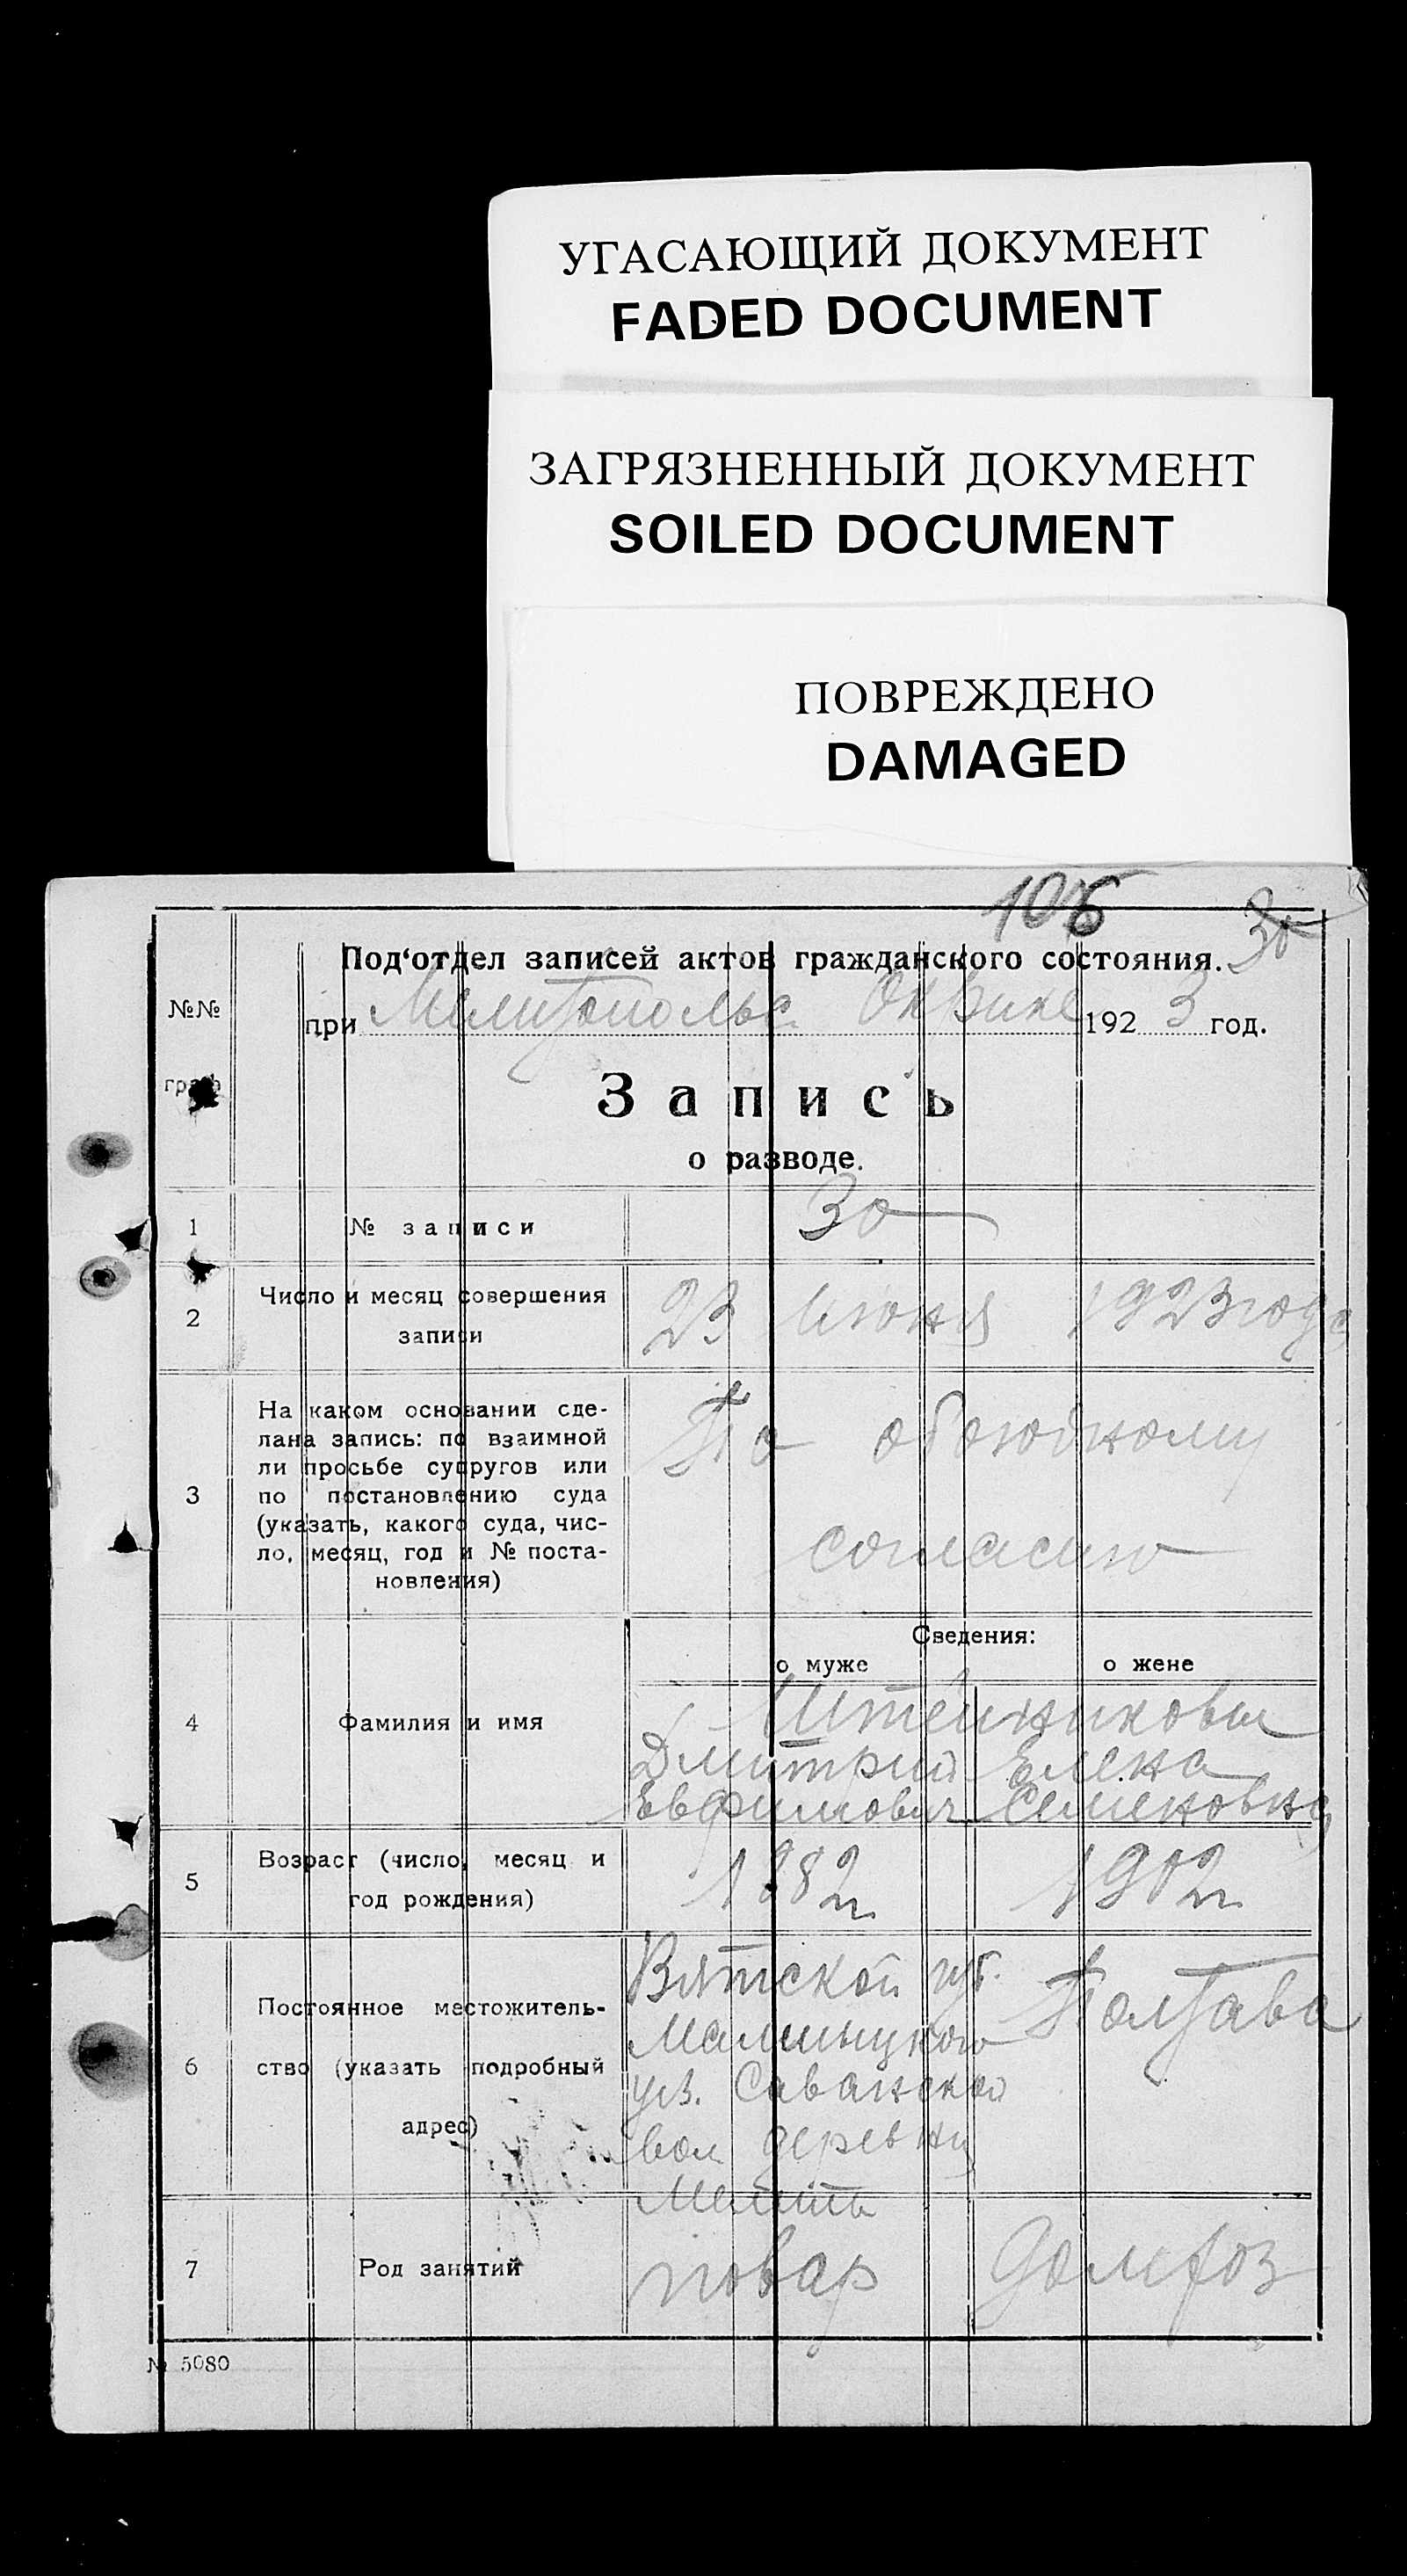 УГАСАЮЩИЙ ДОКУМЕНТ
FADED DOCUMENT
ЗАГРЯЗНЕННЫЙ ДОКУМЕНТ
SOILED DOCUMENT
ПОВРЕЖДЕНО
DAMAGED
106
30
Под‘отдел записей актов гражданского состояния.
№№
граф
при Мелитопольс. Окрвике 1923 год.
Запись
о разводе.
1
№ записи
30
2
Число и месяц совершения
записи
23 июня 1923 года
3
На каком основании сде-
лана запись: по взаимной
ли просьбе супругов или
по постановлению суда
(указать, какого суда, чис-
ло, месяц, год и № поста-
новления)
По обоюдному
согласию
Сведения:
о муже
о жене
4
Фамилия и имя
Штейниковы
Дмитрий Елена
Евфимович Семеновна
5
Возраст (число, месяц и
год рождения)
1882 г.
1902 г.
6
Постоянное местожитель-
ство (указать подробный
адрес)
Вятской губ.
уез.
вол деревни
Полтава
7
Род занятий
повар
домхоз
№ 5080